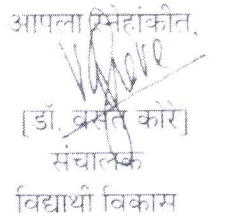 आपला स्नेहांकीत,
[डॉ. वसंत कोरे]
संचालक
विद्यार्थी विकास